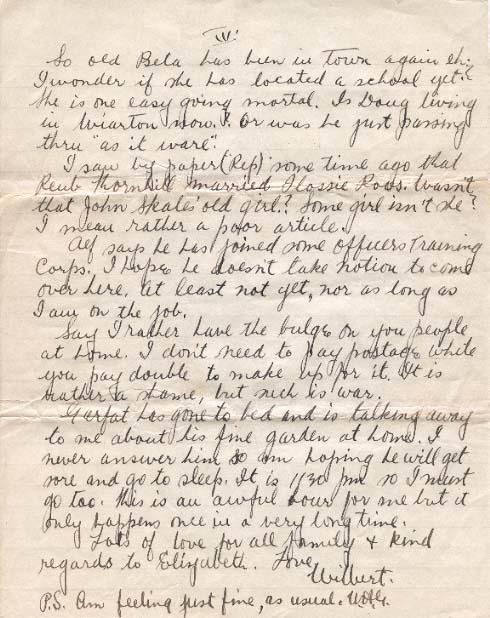 IV.
So old Beta has been in town again eh?
I wonder if she has located a school yet?
She is one easy going mortal. Is Doug living
in Wiarton now? Or was he just passing
thru "as it ware".
I saw by paper (Rep) some time ago that
Reub Thornhill married Flossie Ross. Wasn't
that John Skales' old girl? Some girl isn't she?
I mean rather a poor article.
Alf says he has joined some officers Training
Corps. I hope he doesn't take notion to come
over here. At least not yet, nor as long as
I am on the job.
Say I rather have the bulge on you people
at home. I don't need to pay postage while
you pay double to make up for it. It is
rather a shame, but such is war.
Garfat has gone to bed and is talking away
to me about his fine garden at home. I
never answer him so am hoping he will get
sore and go to sleep. It is 1130 pm so I must
go too. This is an awful hour for me but it
only happens once in a very long time.
Lots of love for all family & kind
regards to Elizabeth. Love,
Wilbert.
P.S. Am feeling just fine, as usual.